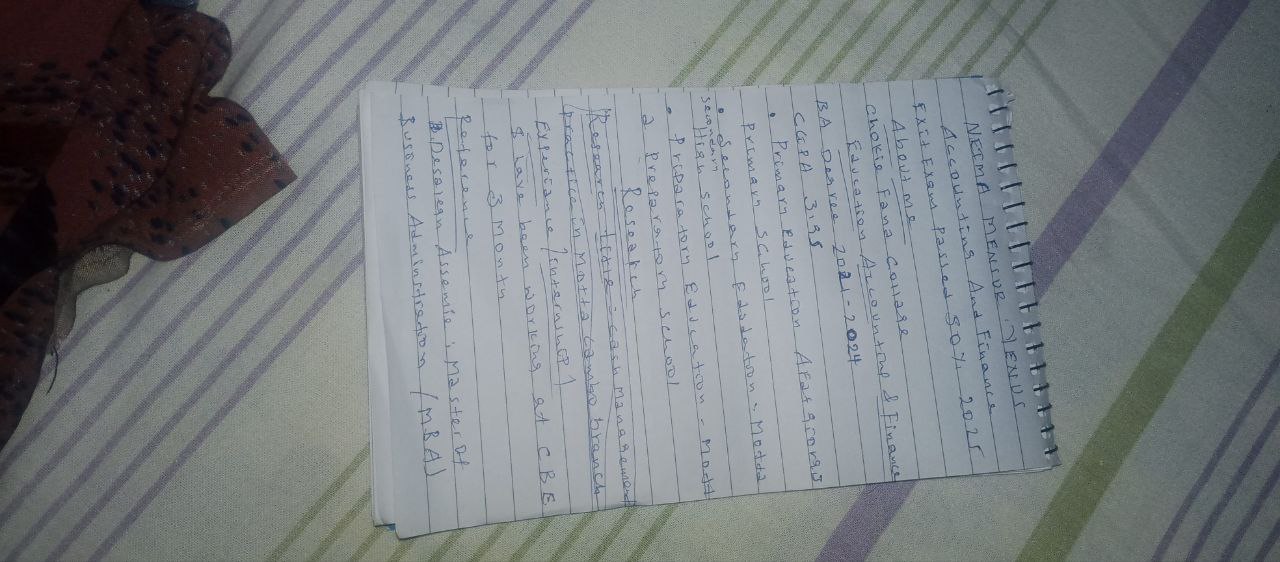 NEIMA MENSUR YENUS
Accounting And Finance
Exit Exam passed 50% 2025
About me
Chokie Fana Collage
Education Accounting & Finance
BA Degree 2021-2024
CGPA 3.95
• Primary Education
Primary School
• Secondary Edudation - Motta
Secondary
High School
• Preparatory Education - Mott
a Preparatory School
Research
Research title = cash management
practice in Motta branch
Experiance / internship /
I have been working at CBE
for 3 Month
Reference
Desalegn Assemie : Master of
Business Adminstration (MBA)